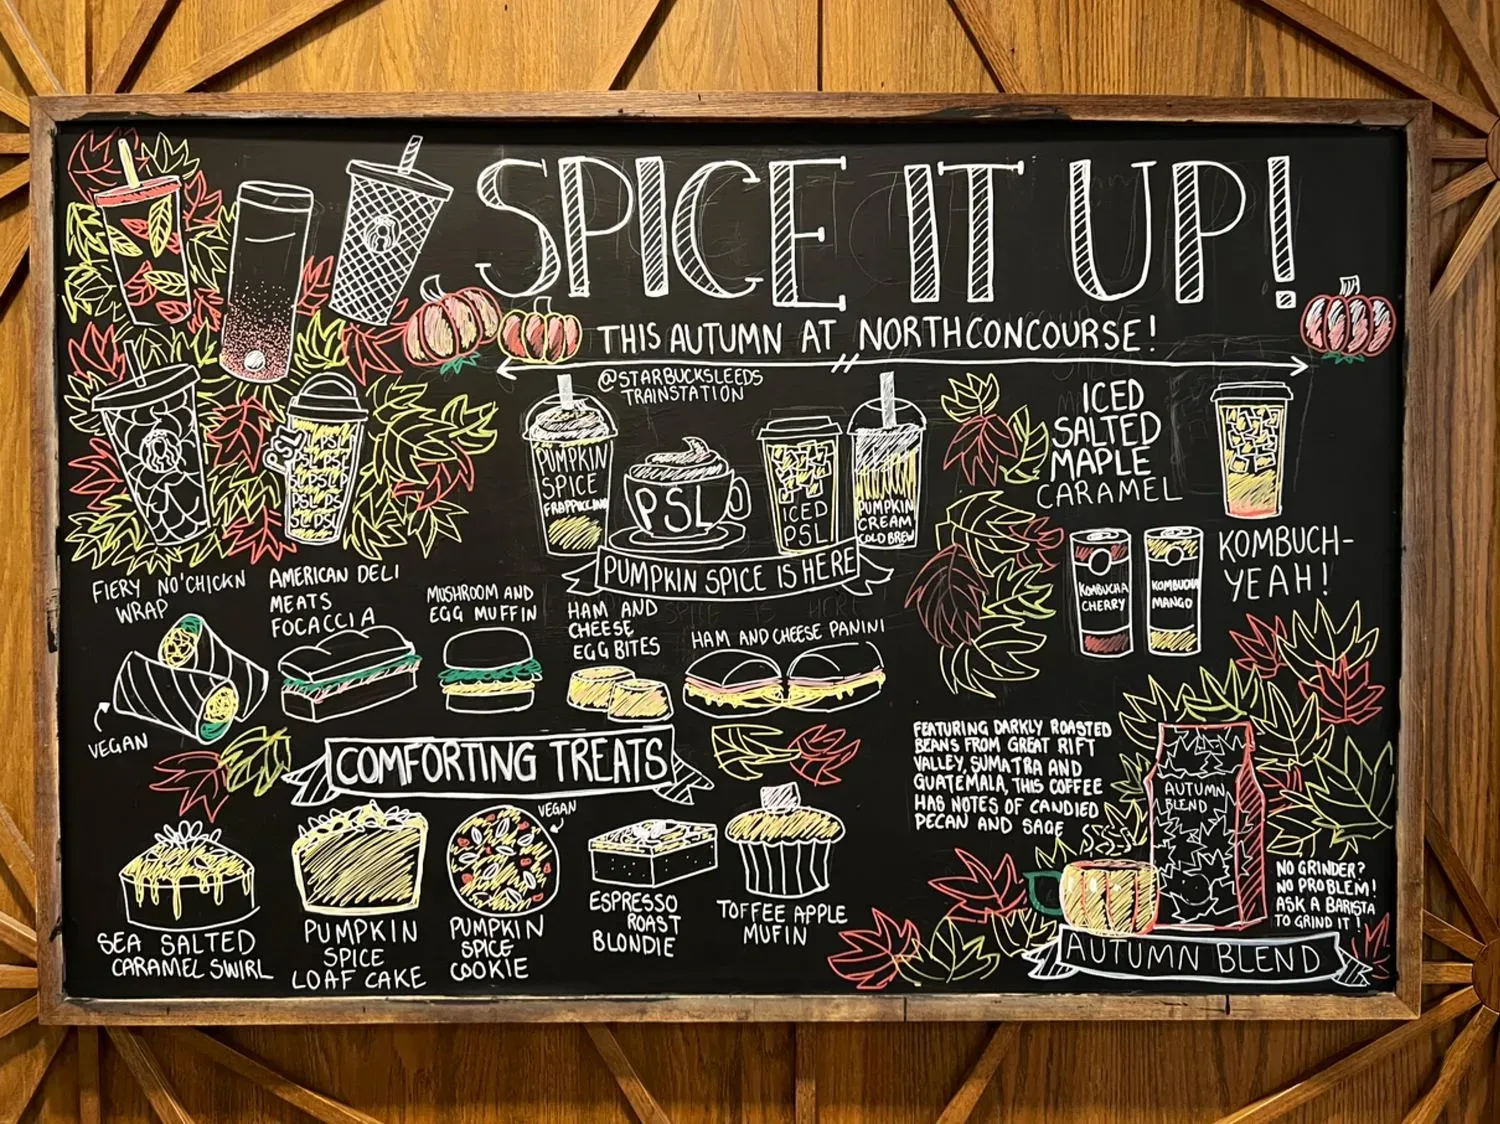 SPICE IT UP!
THIS AUTUMN AT NORTHCONCOURSE!
@STARBUCKSLEEDS
TRAINSTATION
PSL
PSL
PSL
PUMPKIN
SPICE
FRAPPUCCINO
PSL
ICED
PSL
PUMPKIN
CREAM
COLD BREW
PUMPKIN SPICE IS HERE
ICED
SALTED
MAPLE
CARAMEL
KOMBUCHA
CHERRY
KOMBUCHA
MANGO
KOMBUCH-
YEAH!
FIERY NO'CHICKN
WRAP
VEGAN
AMERICAN DELI
MEATS
FOCACCIA
MUSHROOM AND
EGG MUFFIN
HAM AND
CHEESE
EGG BITES
HAM AND CHEESE PANINI
COMFORTING TREATS
SEA SALTED
CARAMEL SWIRL
PUMPKIN
SPICE
LOAF CAKE
VEGAN
PUMPKIN
SPICE
COOKIE
ESPRESSO
ROAST
BLONDIE
TOFFEE APPLE
MUFIN
FEATURING DARKLY ROASTED
BEANS FROM GREAT RIFT
VALLEY, SUMATRA AND
GUATEMALA, THIS COFFEE
HAS NOTES OF CANDIED
PECAN AND SAGE
AUTUMN
BLEND
NO GRINDER?
NO PROBLEM!
ASK A BARISTA
TO GRIND IT!
AUTUMN BLEND